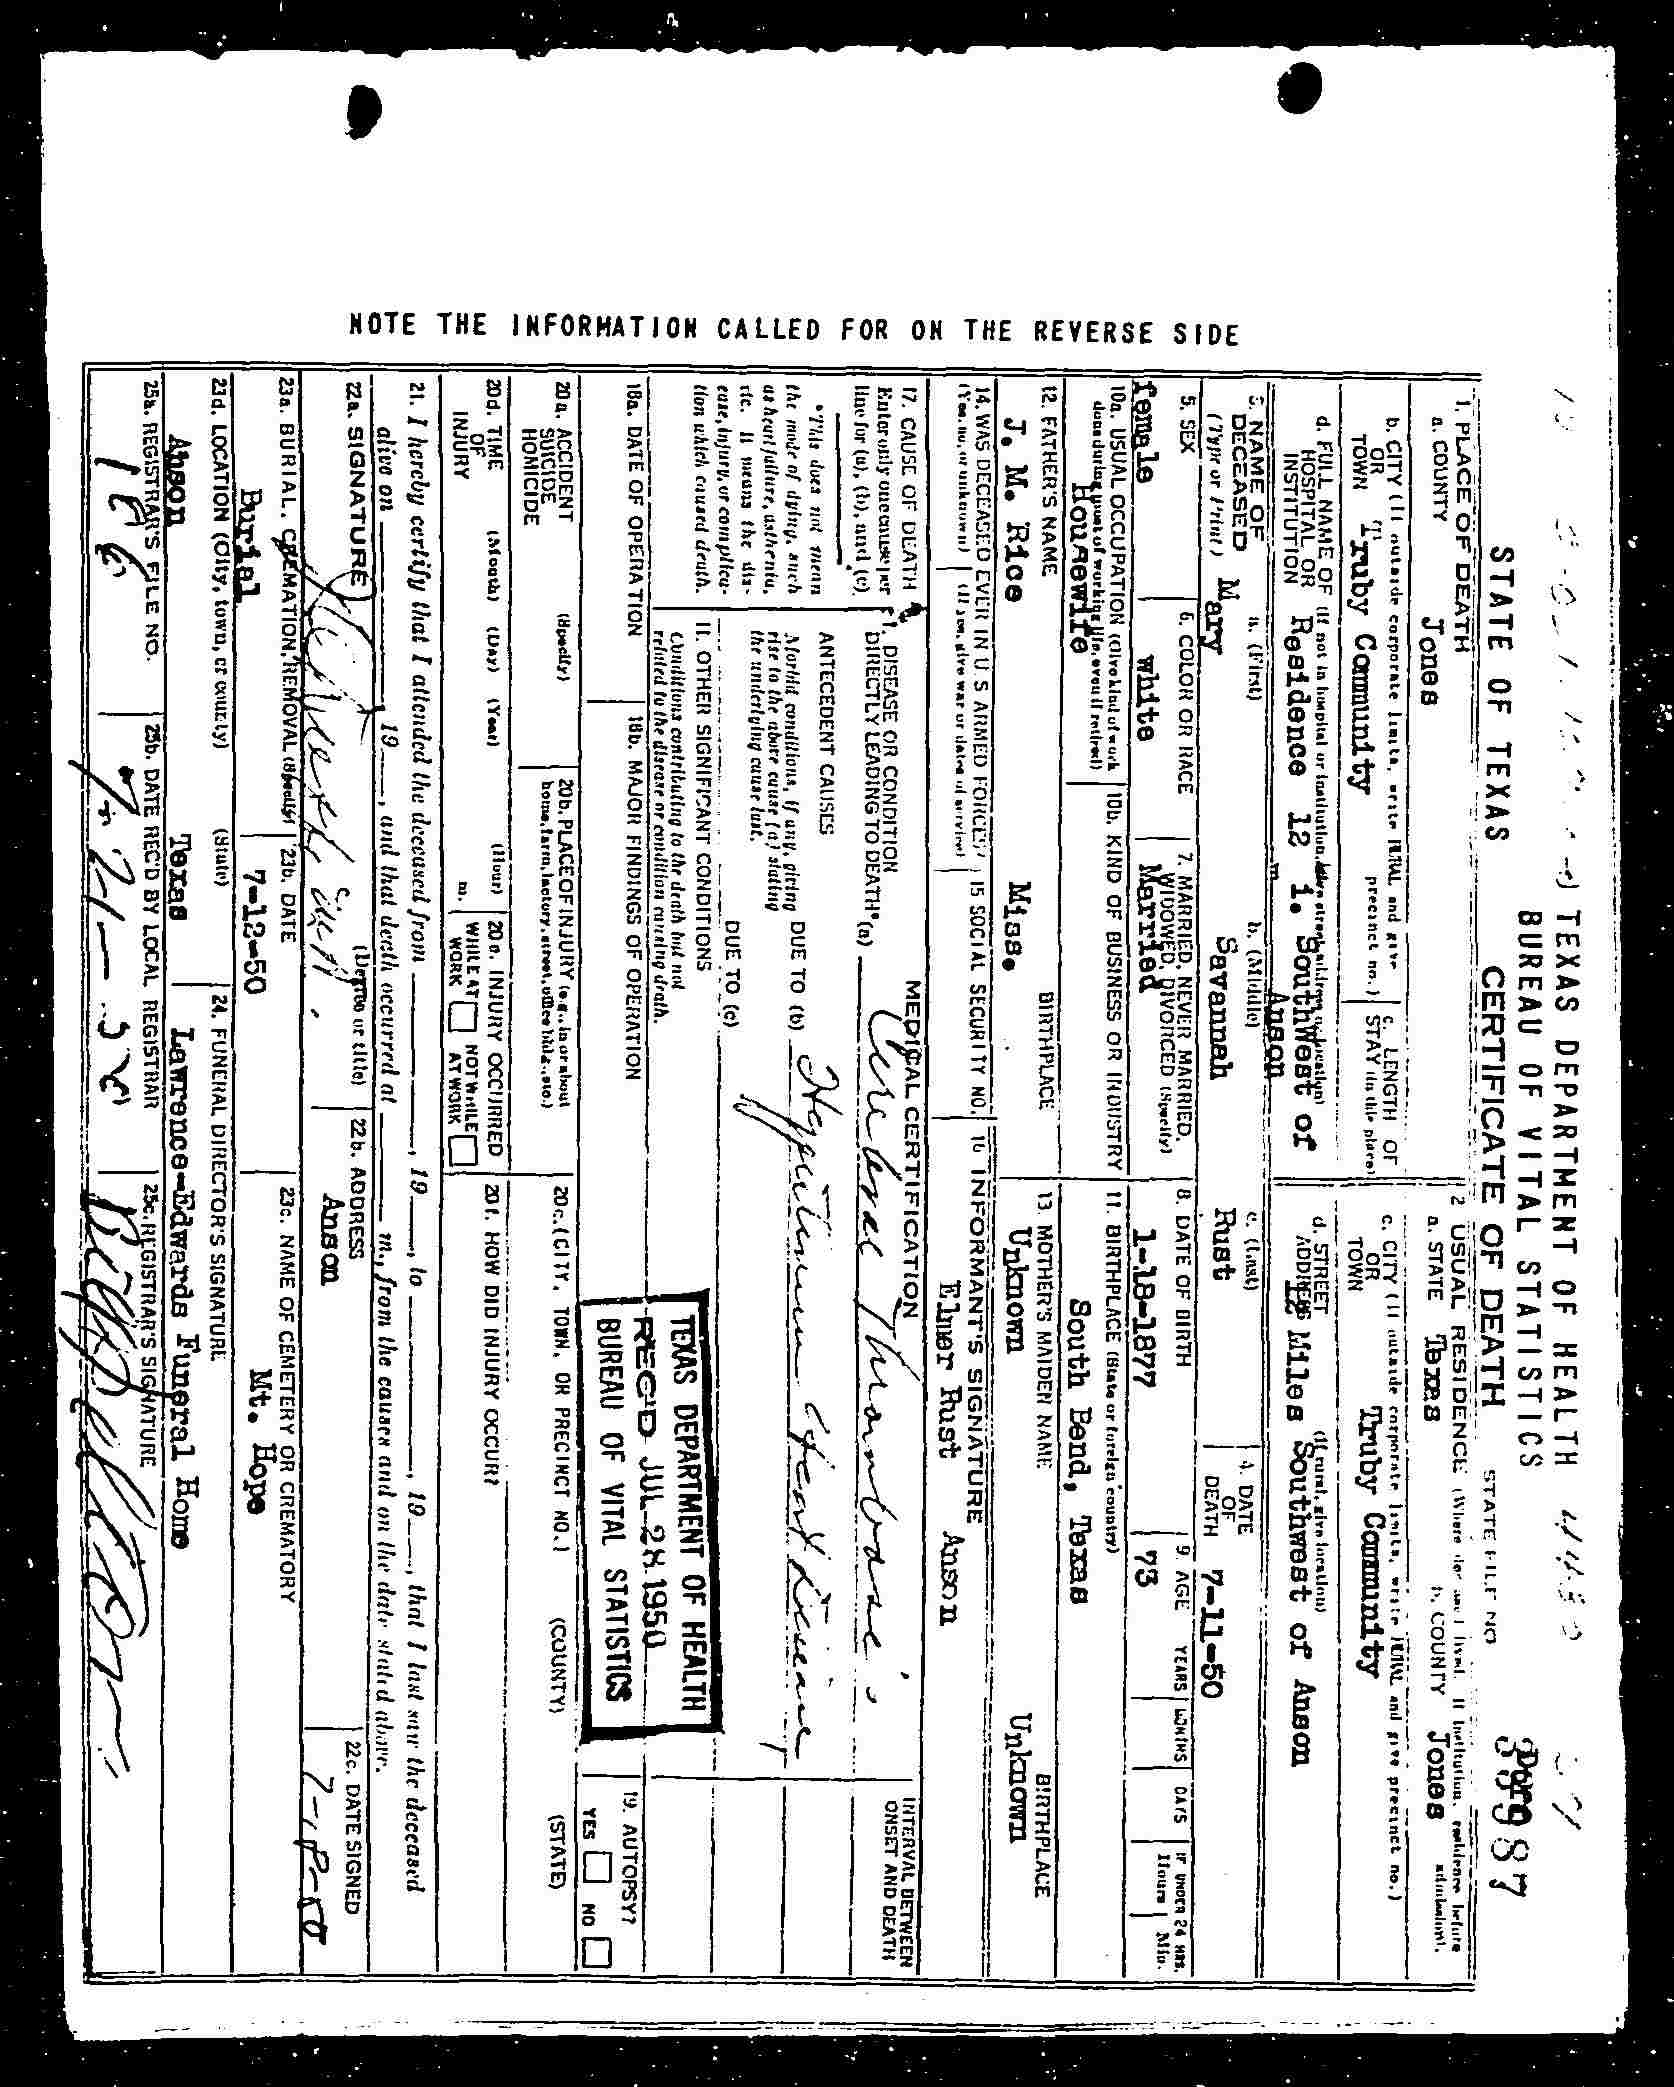 NOTE THE INFORMATION CALLED FOR ON THE REVERSE SIDE
TEXAS DEPARTMENT OF HEALTH
BUREAU OF VITAL STATISTICS
STATE OF TEXAS CERTIFICATE OF DEATH STATE FILE NO 33987
1. PLACE OF DEATH
a. COUNTY Jones
2 USUAL RESIDENCE (Where deceased lived. If institution, residence before admission).
a. STATE Texas b. COUNTY Jones
b. CITY (If outside corporate limits, write RURAL and give precinct no.)
OR
TOWN Truby Community
c. LENGTH OF
STAY (in this place)
c. CITY (If outside corporate limits, write RURAL and give precinct no.)
OR
TOWN Truby Community
d. FULL NAME OF (If not in hospital or institution, give street address or location)
HOSPITAL OR
INSTITUTION Residence 12 SouthWest of
Anson
d. STREET (If rural, give location)
ADDRESS 12 Miles Southwest of Anson
3. NAME OF
DECEASED
(Type or Print)
a. (First) Mary
b. (Middle) Savannah
c. (Last) Rust
4. DATE
OF
DEATH 7-11-50
5. SEX
female
6. COLOR OR RACE
white
7. MARRIED, NEVER MARRIED,
WIDOWED, DIVORCED (Specify)
Married
8. DATE OF BIRTH
1-18-1877
9. AGE YEARS MONTHS DAYS IF UNDER 24 HRS. Hours Min.
73
10a. USUAL OCCUPATION (Give kind of work
done during most of working life, even if retired)
Housewife
10b. KIND OF BUSINESS OR INDUSTRY
11. BIRTHPLACE (State or foreign country)
South Bend, Texas
12. FATHER'S NAME BIRTHPLACE
J. M. Rice Miss.
13. MOTHER'S MAIDEN NAME BIRTHPLACE
Unknown Unknown
14. WAS DECEASED EVER IN U. S ARMED FORCES?
(Yes, no, or unknown) (If yes, give war or dates of service)
15 SOCIAL SECURITY NO.
16 INFORMANT'S SIGNATURE
Elmer Rust Anson
17. CAUSE OF DEATH
Enter only one cause per
line for (a), (b), and (c)
*This does not mean
the mode of dying, such
as heart failure, asthenia,
etc. It means the dis-
ease, injury, or complica-
tion which caused death.
MEDICAL CERTIFICATION
INTERVAL BETWEEN
ONSET AND DEATH
I. DISEASE OR CONDITION
DIRECTLY LEADING TO DEATH* (a) Cerebral Thrombosis
ANTECEDENT CAUSES
Morbid conditions, if any, giving
rise to the above cause (a) stating
the underlying cause last.
DUE TO (b) Hypertensive Heart disease
DUE TO (c)
II. OTHER SIGNIFICANT CONDITIONS
Conditions contributing to the death but not
related to the disease or condition causing death.
18a. DATE OF OPERATION
18b. MAJOR FINDINGS OF OPERATION
19. AUTOPSY?
YES NO
TEXAS DEPARTMENT OF HEALTH
REC'D JUL 28 1950
BUREAU OF VITAL STATISTICS
20a. ACCIDENT (Specify)
SUICIDE
HOMICIDE
20b. PLACE OF INJURY (e.g., in or about
home, farm, factory, street, office bldg., etc.)
20c. (CITY, TOWN, OR PRECINCT NO.) (COUNTY) (STATE)
20d. TIME (Month) (Day) (Year) (Hour)
OF
INJURY m.
20e. INJURY OCCURRED
WHILE AT WORK NOT WHILE AT WORK
20f. HOW DID INJURY OCCUR?
21. I hereby certify that I attended the deceased from , 19 , to , 19 , that I last saw the deceased
alive on , 19 , and that death occurred at m., from the causes and on the date stated above.
22a. SIGNATURE (Degree or title)
22b. ADDRESS
Anson
22c. DATE SIGNED
7-18-50
23a. BURIAL, CREMATION, REMOVAL (Specify)
Burial
23b. DATE
7-12-50
23c. NAME OF CEMETERY OR CREMATORY
Mt. Hope
23d. LOCATION (City, town, or county) (State)
Anson Texas
24. FUNERAL DIRECTOR'S SIGNATURE
Lawrence-Edwards Funeral Home
25a. REGISTRAR'S FILE NO.
25b. DATE REC'D BY LOCAL REGISTRAR
7-21-50
25c. REGISTRAR'S SIGNATURE